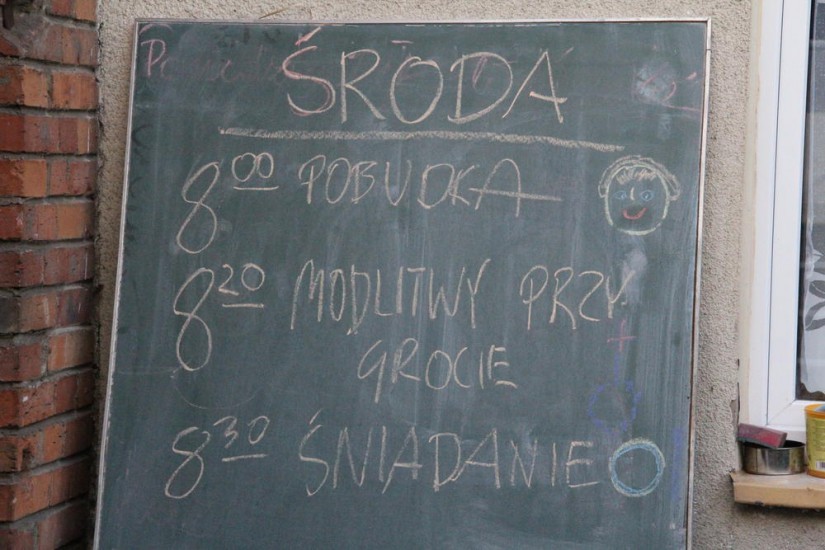 ŚRODA
8⁰⁰ POBUDKA
8²⁰ MODLITWY PRZY
GROCIE
8³⁰ ŚNIADANIE